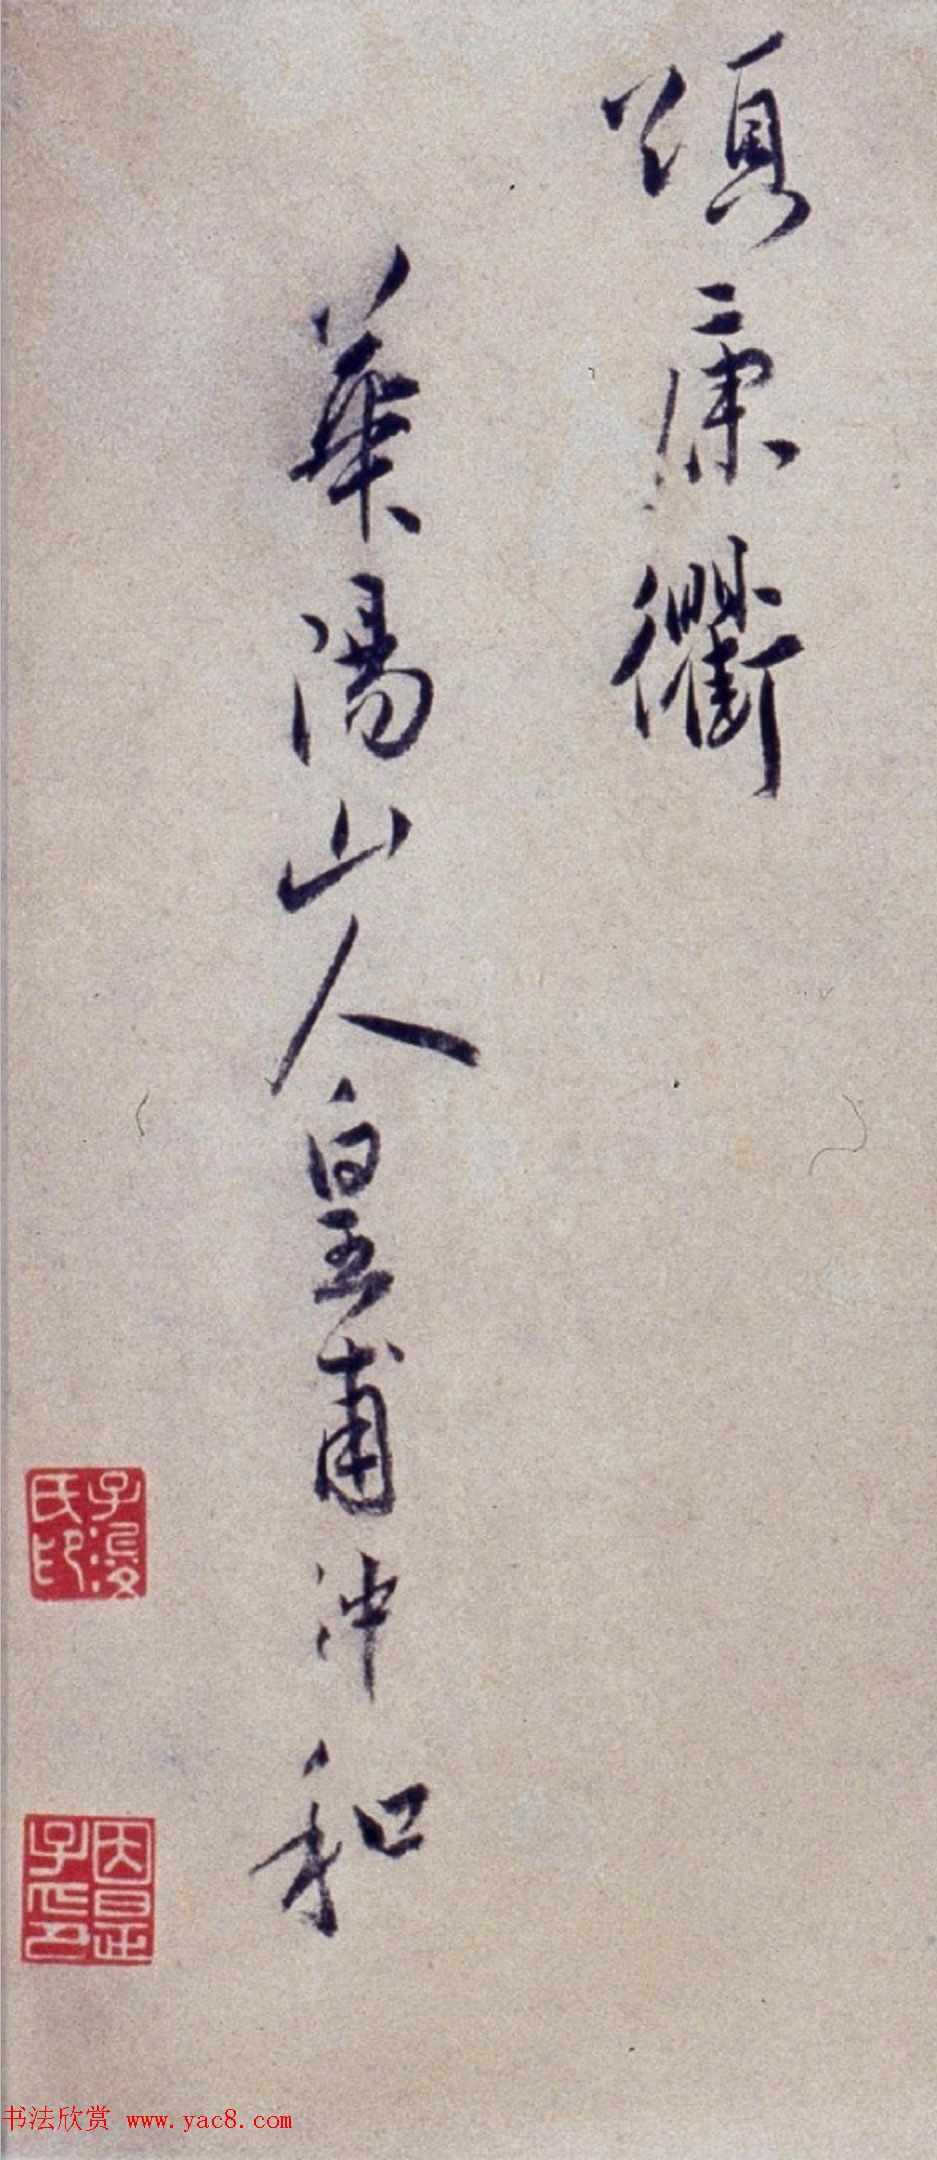 頌康衢
華陽山人皇甫沖和
书法欣赏 www.yac8.com